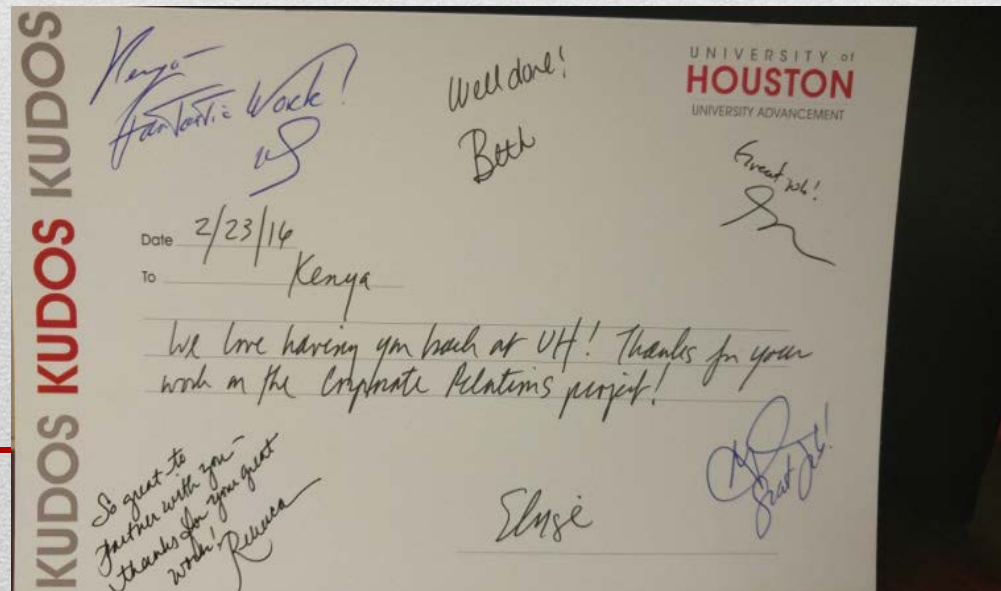 KUDOS KUDOS KUDOS
Kenya-
Fantastic Work!
Well done!
Beth
UNIVERSITY of
HOUSTON
UNIVERSITY ADVANCEMENT
Great job!
Date 2/23/16
To Kenya
We love having you back at UH! Thanks for your
work on the Corporate Relations project!
So great to
partner with you-
thanks for your great
work!
Rebecca
Elyse
Great Job!